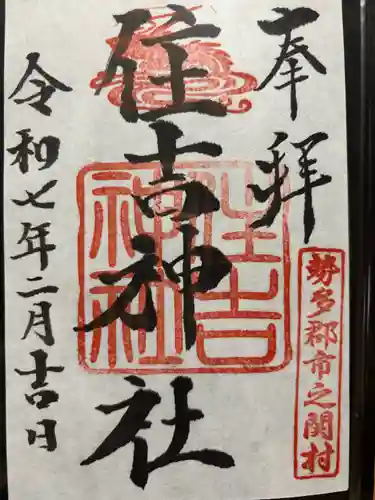 奉拝
勢多郡市之関村
住吉神社
住吉
神社
令和七年二月吉日